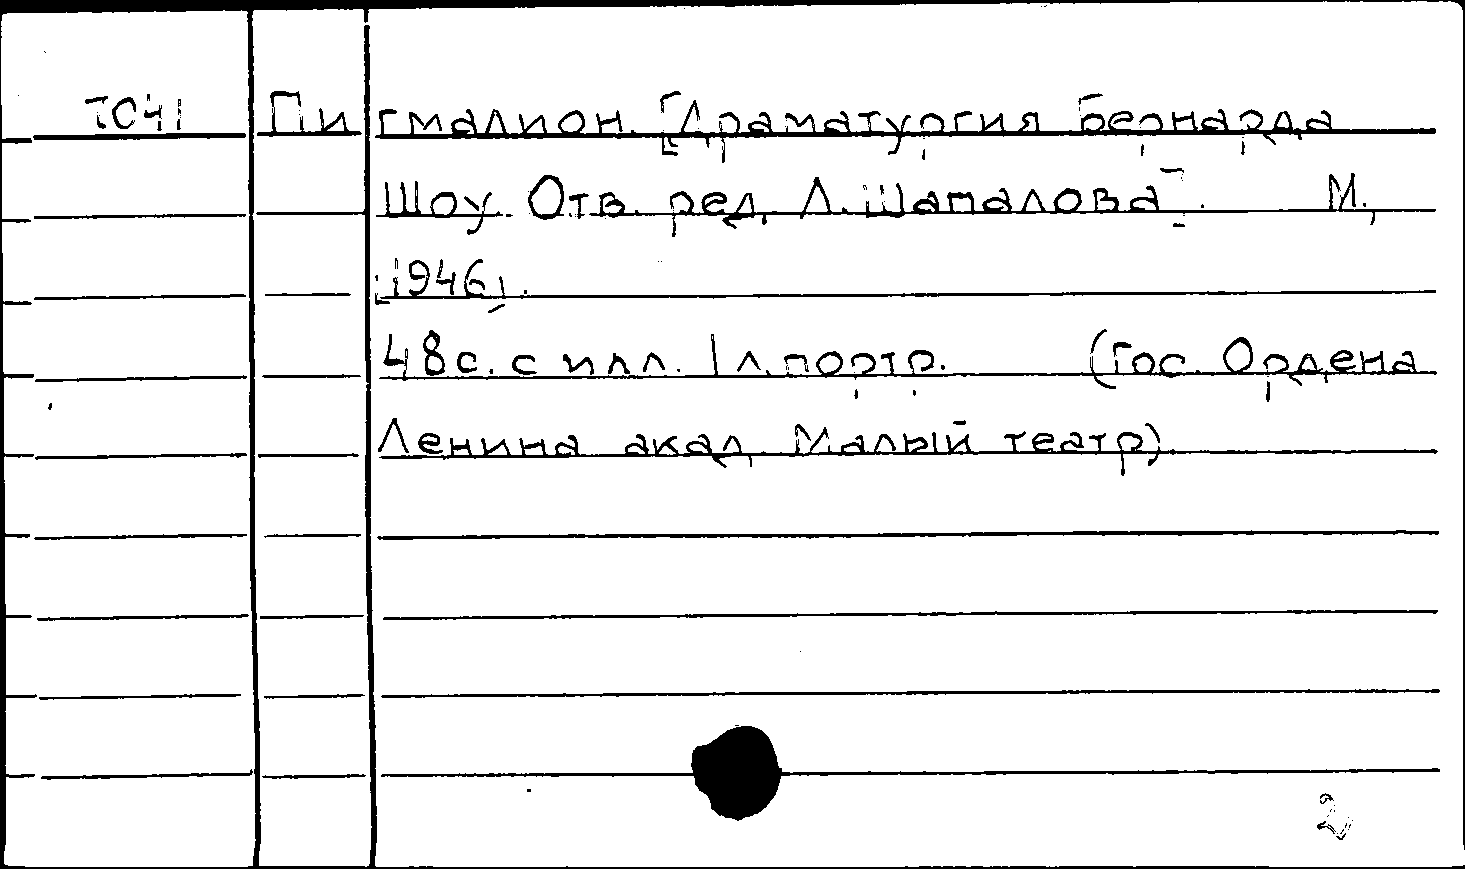 7041 Пигмалион. [Драматургия Бернарда
Шоу. Отв. ред. Л. Шаталова]. М.,
[1946].
48с. с илл. 1 л. портр. (Гос. Ордена
Ленина акад. Малый театр).
2